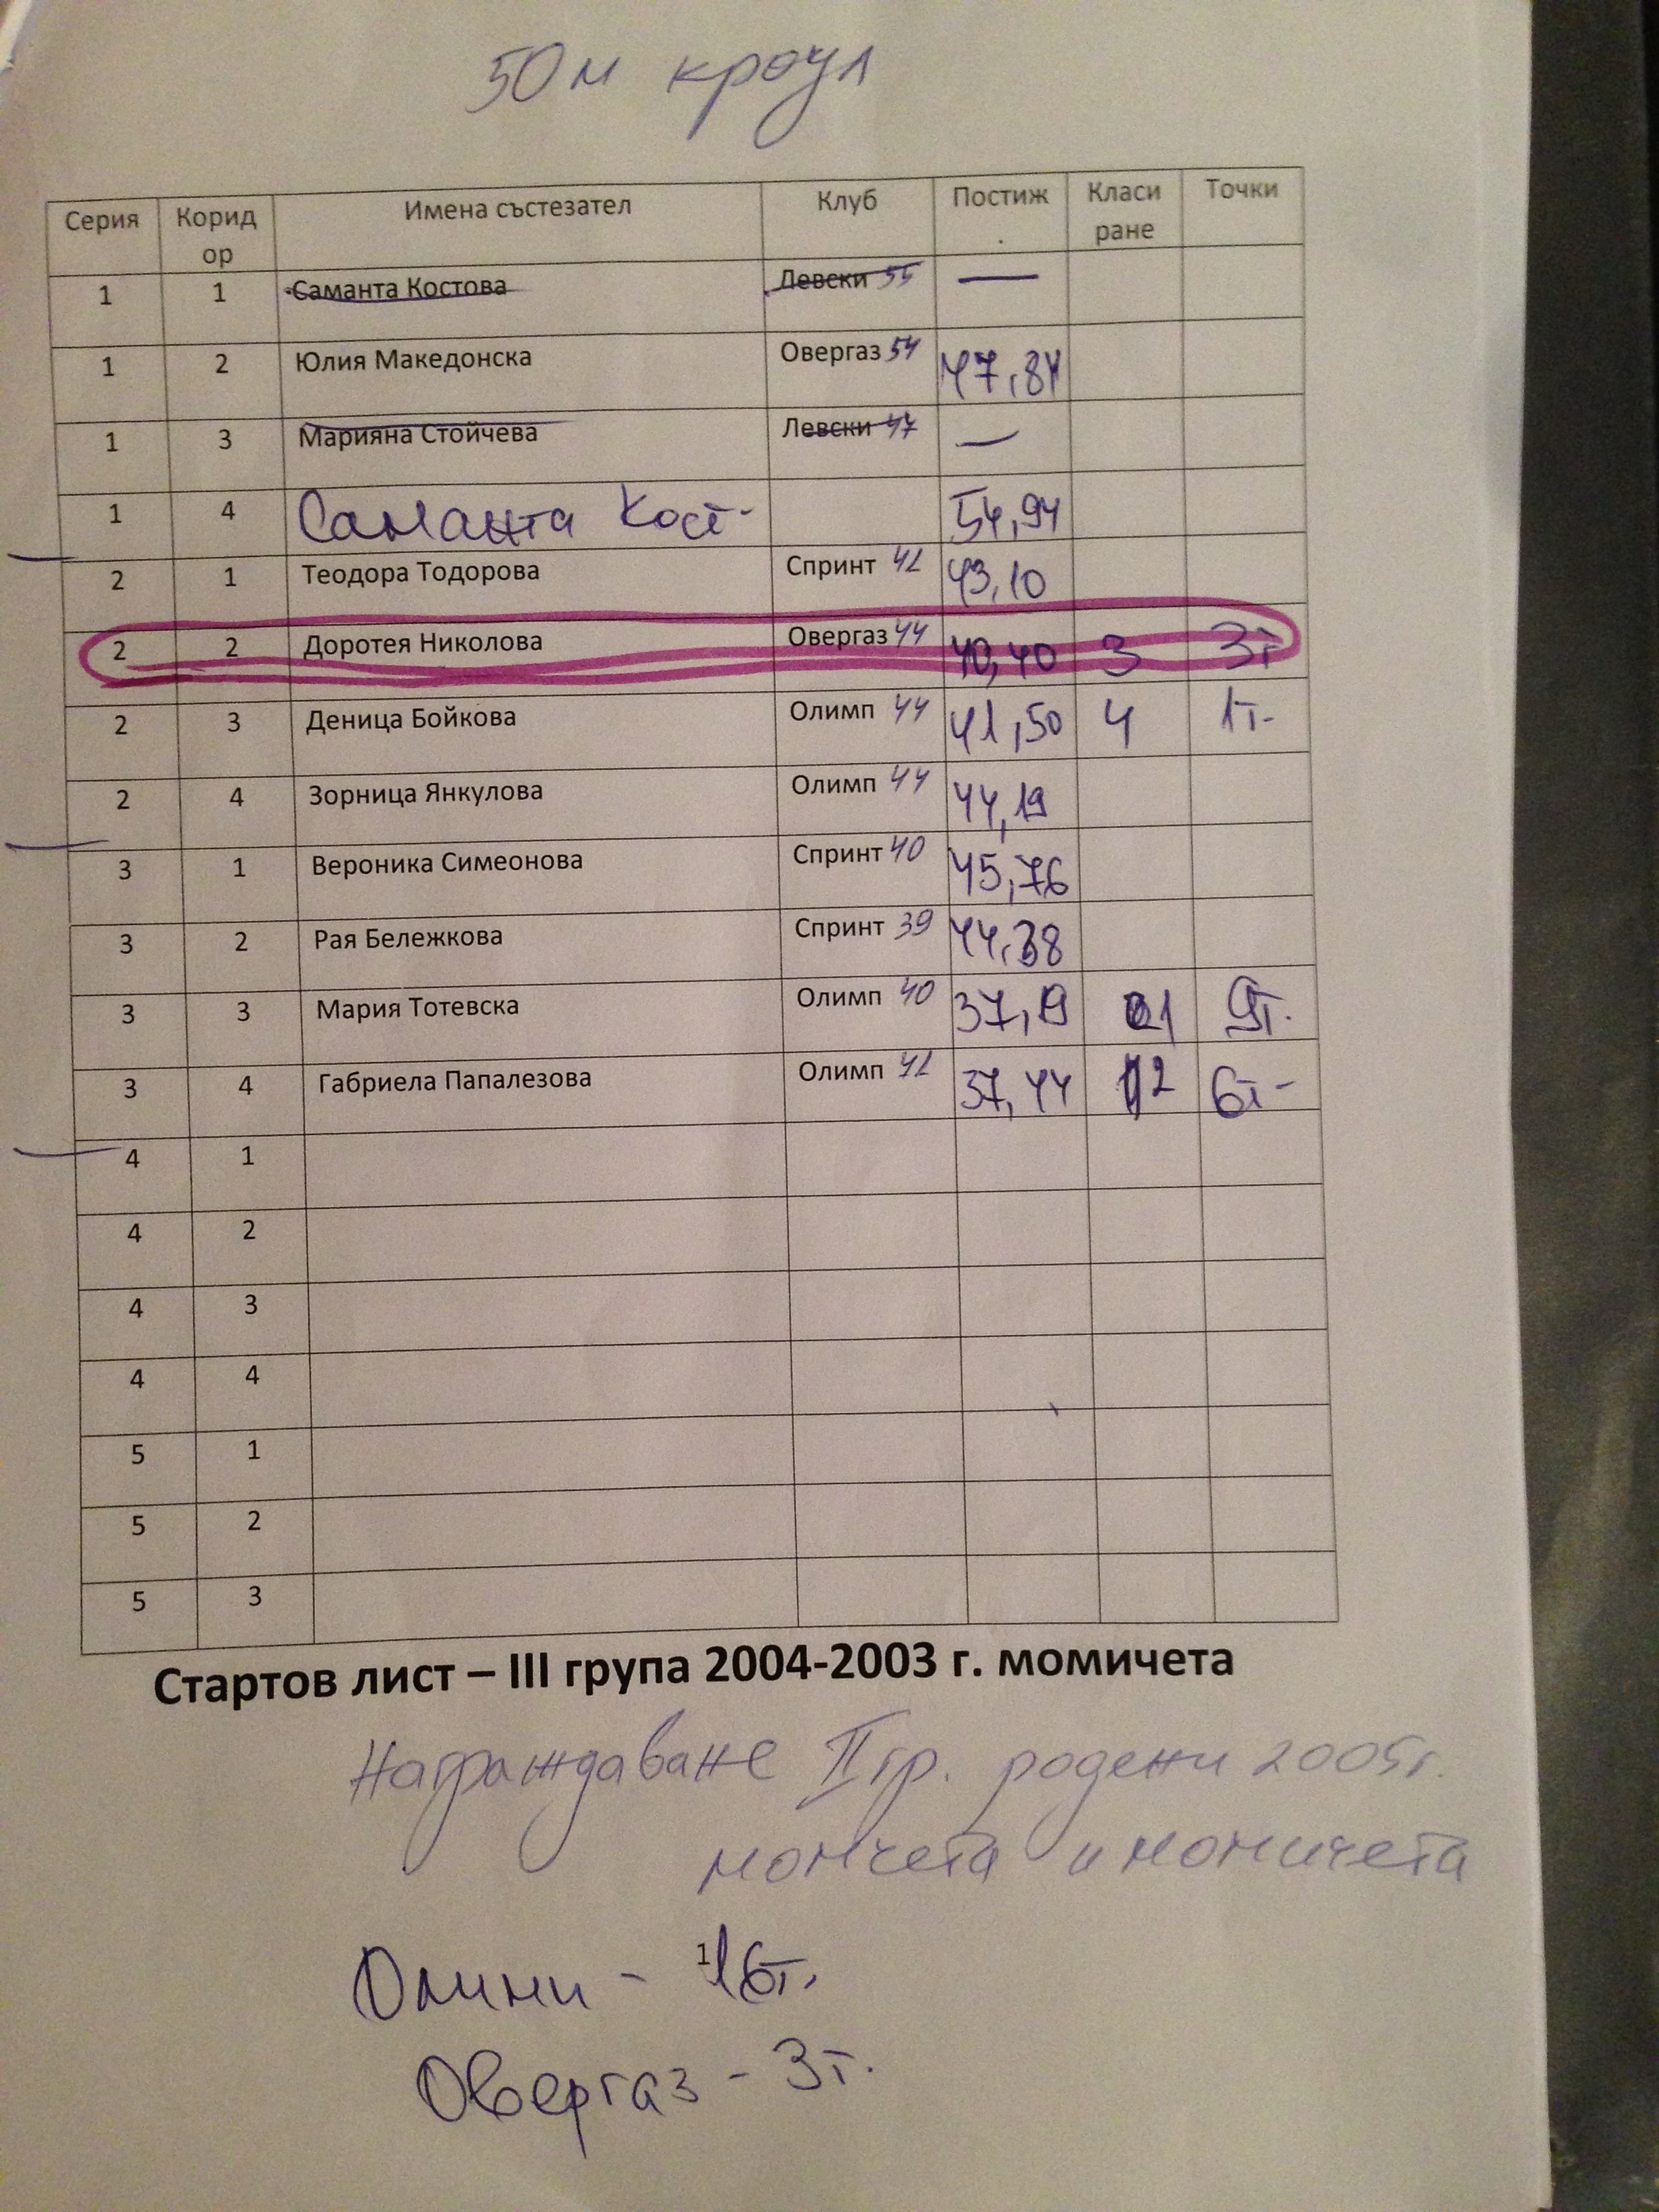 50м кроул
Серия Коридор Имена състезател Клуб Постиж. Класиране Точки
1 1 Саманта Костова Левски 55 —
1 2 Юлия Македонска Овергаз 54 47,84
1 3 Марияна Стойчева Левски 47 —
1 4 Саманта Кост- 54,94
2 1 Теодора Тодорова Спринт 42 43,10
2 2 Доротея Николова Овергаз 44 40,40 3 3т
2 3 Деница Бойкова Олимп 44 41,50 4 1т.
2 4 Зорница Янкулова Олимп 44 44,19
3 1 Вероника Симеонова Спринт 40 45,76
3 2 Рая Бележкова Спринт 39 44,38
3 3 Мария Тотевска Олимп 40 37,19 1 9т.
3 4 Габриела Папалезова Олимп 42 37,44 2 6т-
4 1
4 2
4 3
4 4
5 1
5 2
5 3
Стартов лист – III група 2004-2003 г. момичета
Награждаване II гр. родени 2005г.
момчета и момичета
1
Олимп - 16т.
Овергаз - 3т.